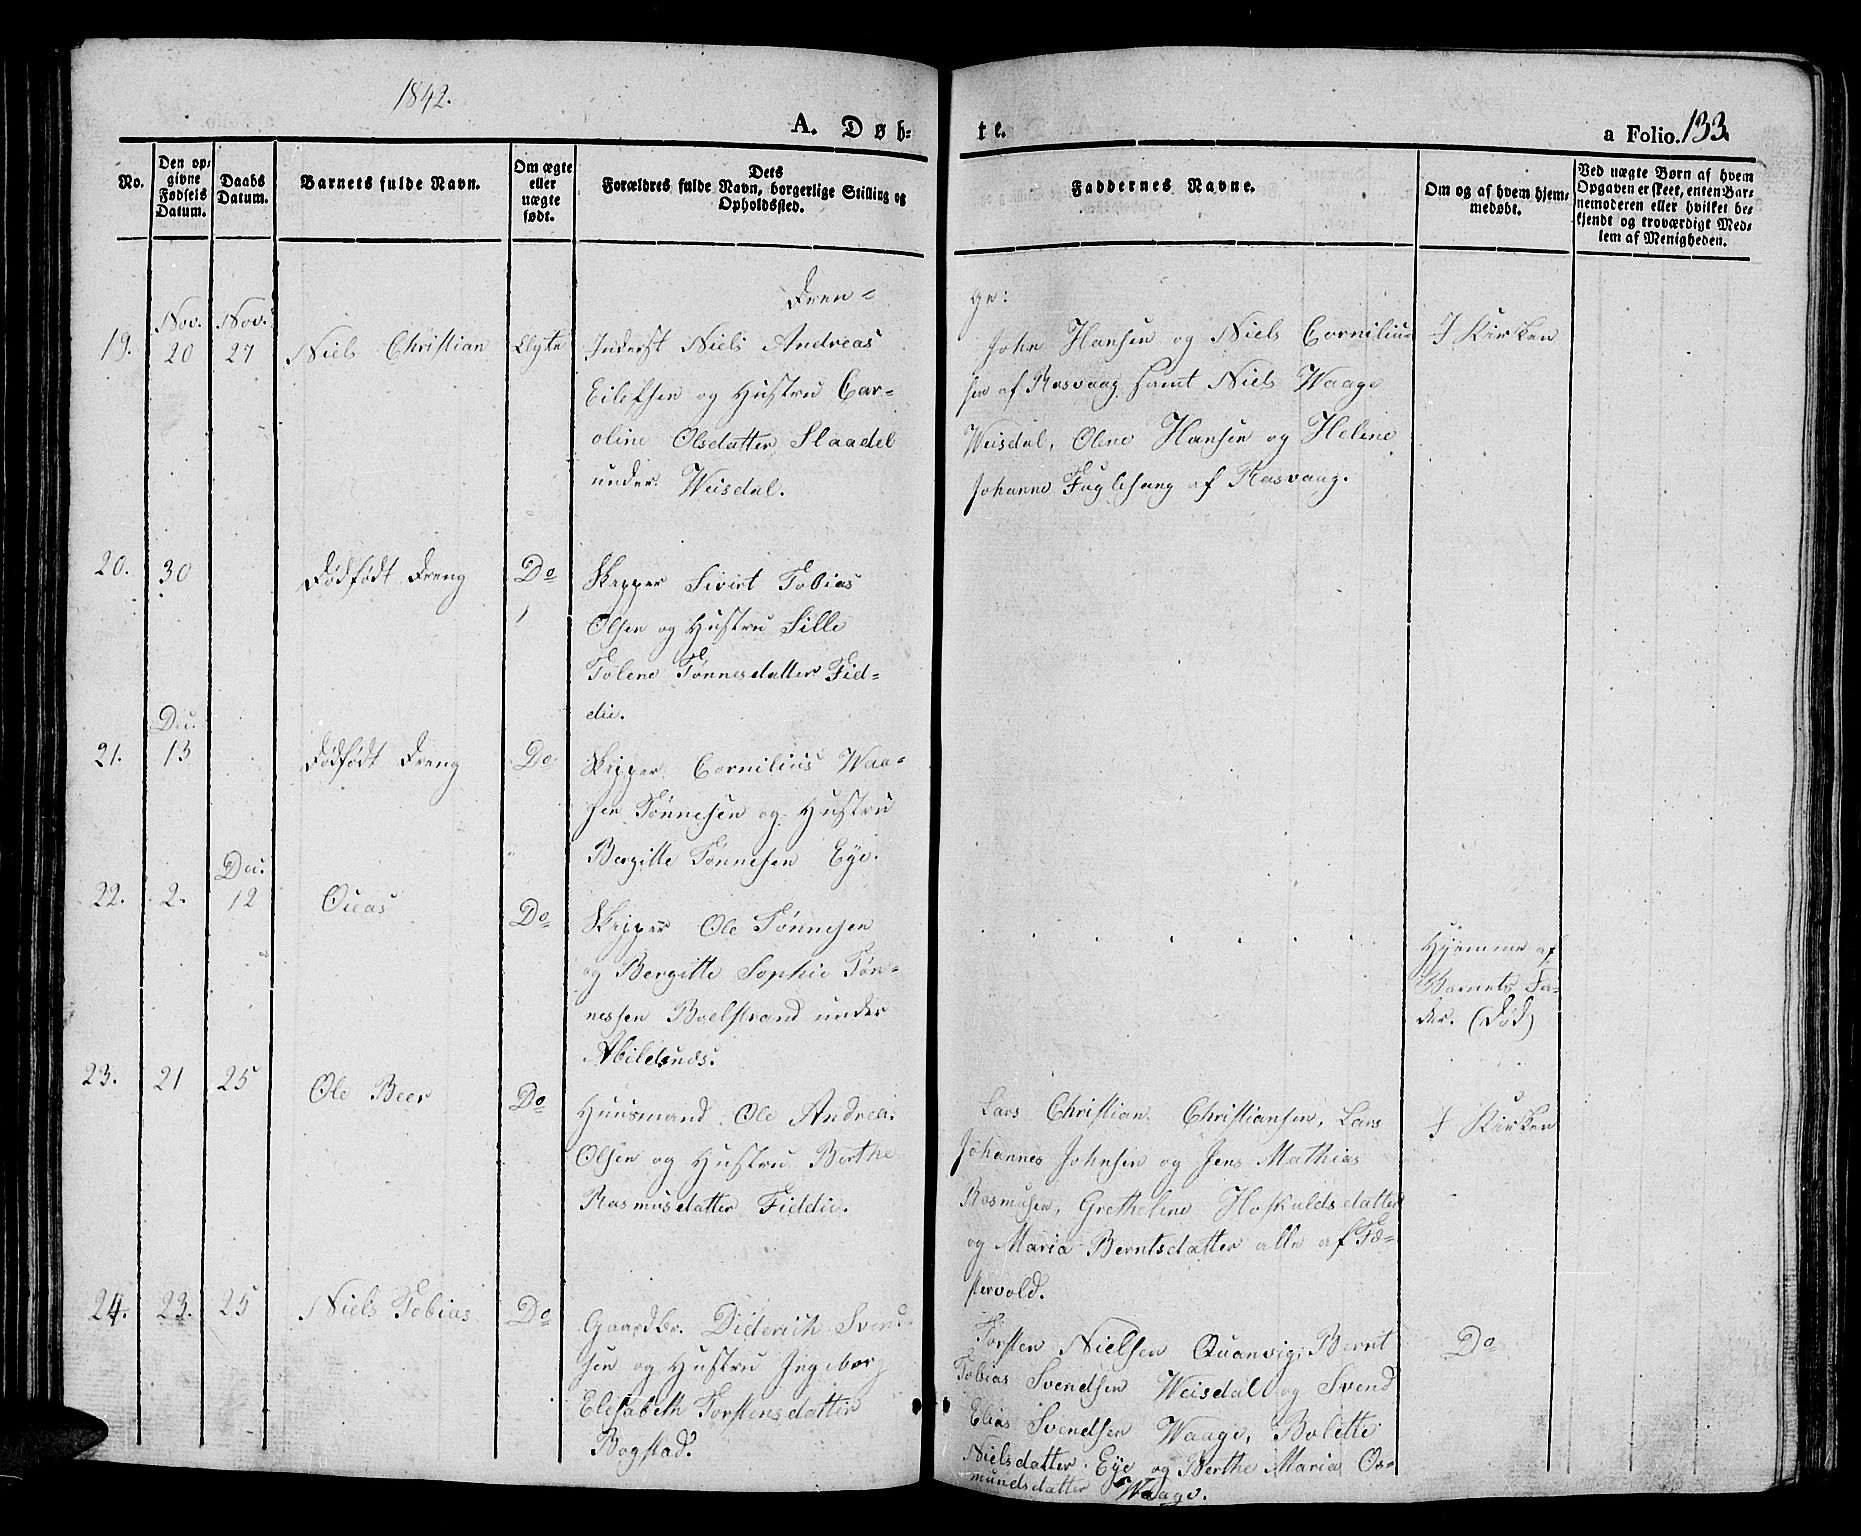 1842.
A. Døb- te. a Folio. 133.
No. Den opgivne Fødsels Datum. Daabs Datum. Barnets fulde Navn. Om ægte eller uægte født. Dets Forældres fulde Navn, borgerlige Stilling og Opholdssted. Faddernes Navne. Om og af hvem hjemmedøbt. Ved uægte Børn af hvem Opgaven er skeet, enten Barnemoderen eller hvilket bekjendt og troværdigt Medlem af Menigheden.
Dren= ge:
19. Nov. 20 Nov. 27 Niels Christian Ægte Inderst Niels Andreas
Eilefsen og Hustru Car=
oline Olsdatter Slaadel
under Weisdal.
John Hansen og Niels Cornilius=
sen af Rasvaag samt Niels Waage
Weisdal, Olene Hansen og Helene
Johanne Fuglesang af Rasvaag.
I Kirken
20. 30 Dødfødt Dreng Do Skipper Sivert Tobias
Olsen og Hustru Sille
Tolene Tønnesdatter Fid=
die.
21. Dec. 13 Dødfødt Dreng Do Skipper Cornilius Waa=
sen Tønnesen og Hustru
Bergitte Tønnesen Eye.
22. 2. Dec. 12 Do Skipper Ole Tønnesen
og Bergitte Sophie Tøn=
nessen Boelstrand under
Abildsnæs.
Hjemme af
Barnets Fa=
der. (Død)
23. 21 25 Ole Beer Do Huusmand Ole Andreas
Olsen og Hustru Berthe
Rasmusdatter Fiddie.
Lars Christian Christiansen, Lars
Johannes Johnsen og Jens Mathias
Rasmusen, Grethelene Hoskuldsdatter
og Maria Berntsdatter alle af Fæ=
stervold.
I Kirken
24. 23. 25 Niels Tobias Do Gaardbr. Diderich Svend=
sen og Hustru Ingeborg
Elisabeth Torstensdatter
Bogstad.
Torsten Nielsen Quanvig, Bernt
Tobias Svendsen Weisdal og Svend
Elias Svendsen Waage, Bolette
Nielsdatter Eye og Berthe Maria Os=
mundsdatter Waage.
Do